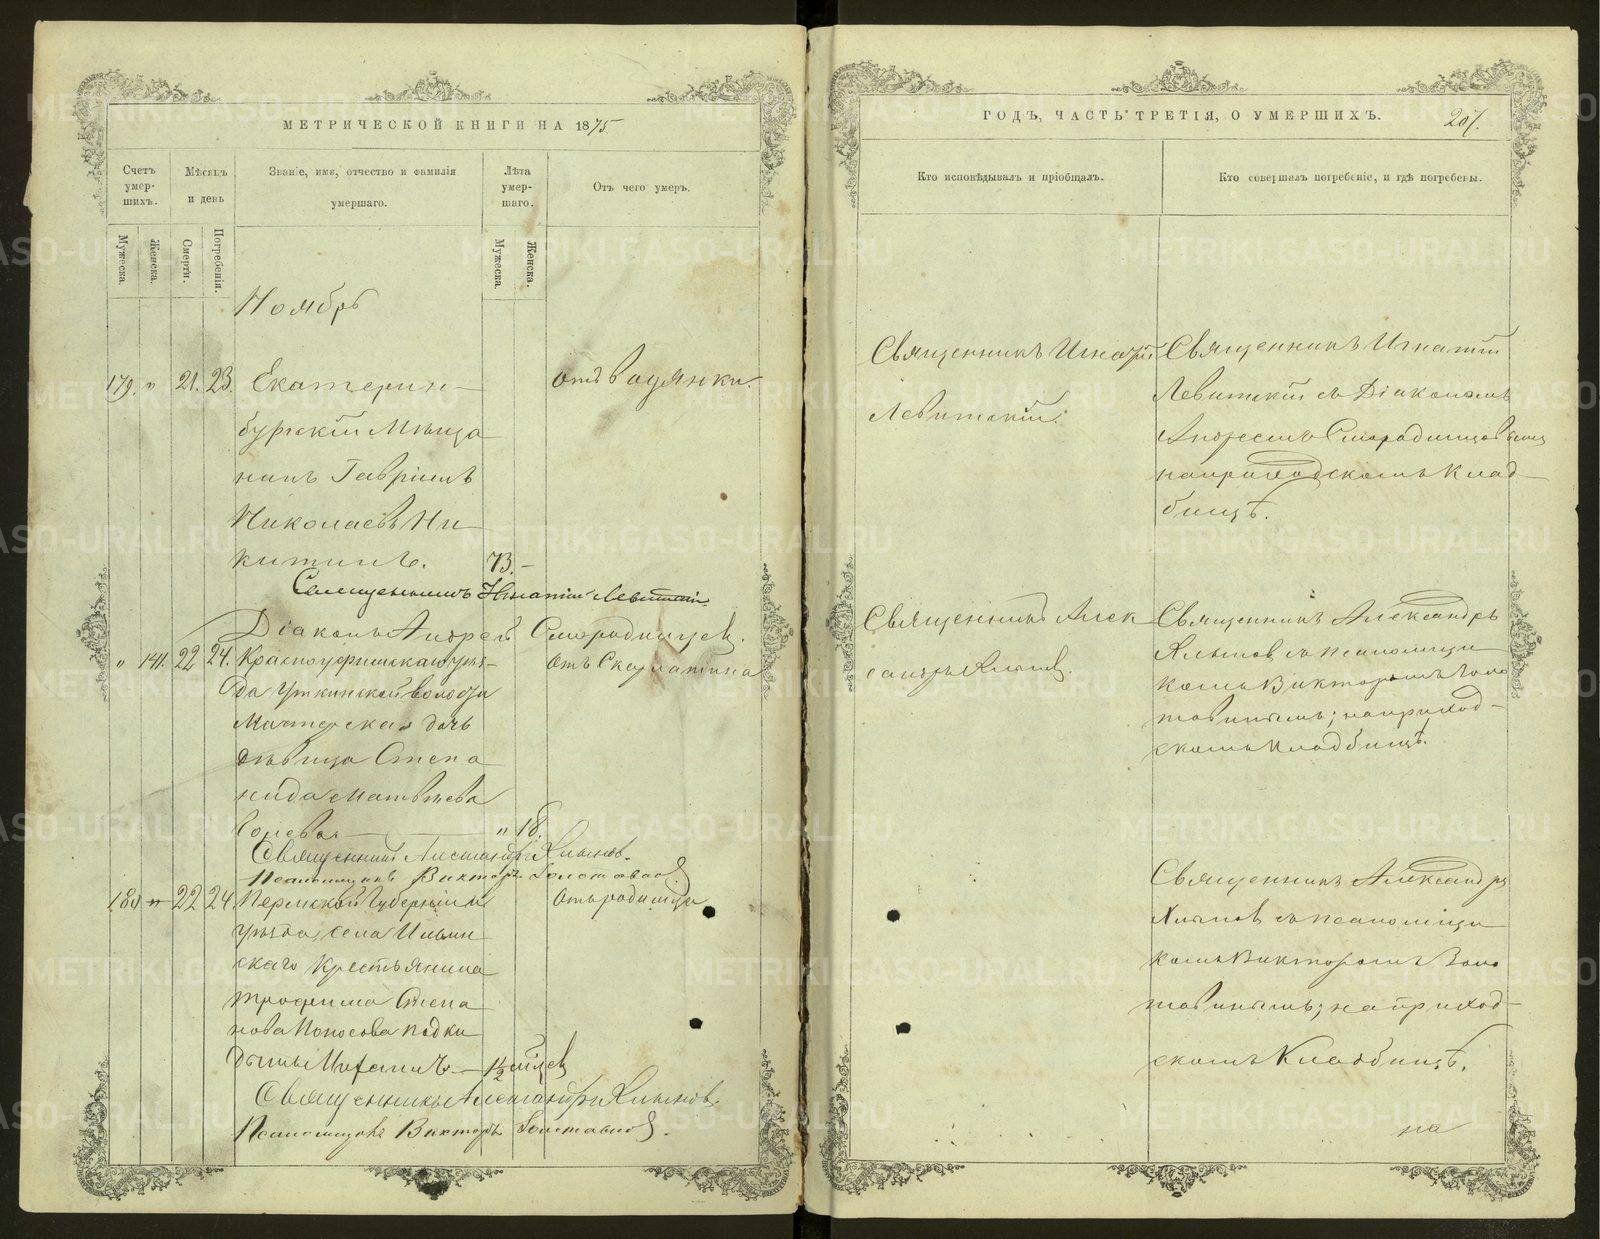 МЕТРИЧЕСКОЙ КНИГИ НА 1875
Счетъ умер-шихъ.
Мѣсяцъ и день
Званіе, имя, отчество и фамилія умершаго.
Лѣта умер-шаго.
Отъ чего умеръ.
Мужеска.
Женска.
Смерти.
Погребенія.
Мужеска.
Женска.
Ноябрь
179. " 21. 23. Екатерин- отъ водянки.
бургскій Мѣща
нинъ Гавріилъ
Николаевъ Ни-
китинъ. 73. -
Священникъ Игнатій Левитскій.
Діаконъ Андрей Смородинцев.
" 141. 22 24. Красноуфимскаго уѣз- отъ Скарлатина
да Уткинской волости
Мастерская дочь
дѣвица Степа
нида Матвѣева
" 18.
Священникъ Александръ Хлыновъ.
Псаломщикъ Викторъ Золотавинъ.
180 " 22 24. Пермской Губерніи и отъ родимца
уѣзда, села Ильин
скаго Крестьянина
Трофима Степа
нова Поносова подки
дышъ 1½ мѣсяц
Священникъ Александръ Хлыновъ.
Псаломщикъ Викторъ Золотавинъ.
ГОДЪ, ЧАСТЬ ТРЕТІЯ, О УМЕРШИХЪ.
207.
Кто исповѣдывалъ и пріобщалъ.
Кто совершалъ погребеніе, и гдѣ погребены.
Священникъ Игнатій
Левитскій.
Священникъ Игнатій
Левитскій съ Діакономъ
Андреемъ Смородинцевымъ
на приходскомъ клад-
бищѣ.
Священникъ Алек
сандръ Хлынов.
Священникъ Александръ
Хлынов съ псаломщи
комъ Викторомъ Золо
тавинымъ; на приход-
скомъ кладбищѣ.
Священникъ Александръ
Хлынов съ псаломщи
комъ Викторомъ Золо
тавинымъ; на приход-
скомъ Кладбищѣ.
на
METRIKI.GASO-URAL.RU